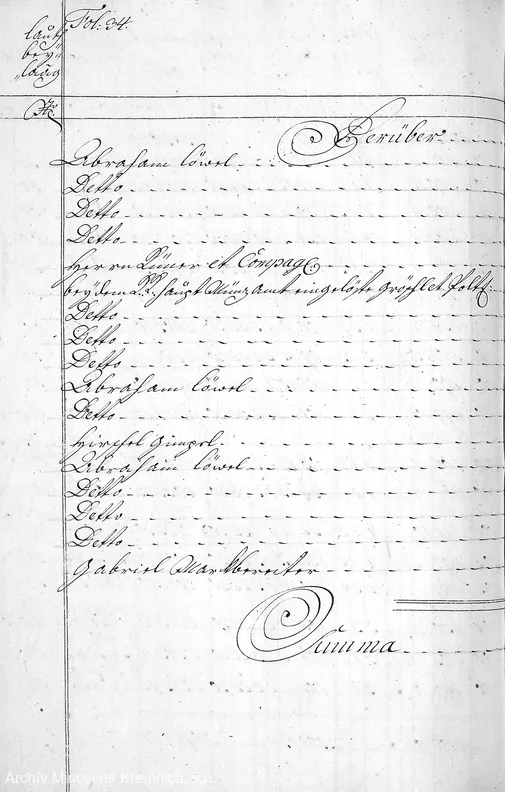 laut
beÿ-
„laag
Fol: 34.
No
Herüber
Abraham Löwel
Detto
Detto
Detto
Herrn et Compag:
beÿ dem K: K: Haupt Münz Amt eingelöste Gröschl et Polt:
Detto
Detto
Detto
Abraham Löwel
Detto
Hirschel Gimpel
Abraham Löwel
Detto
Detto
Detto
Gabriel Markbereiter
Summa
Archiv Mincovne Kremnica, š.p.